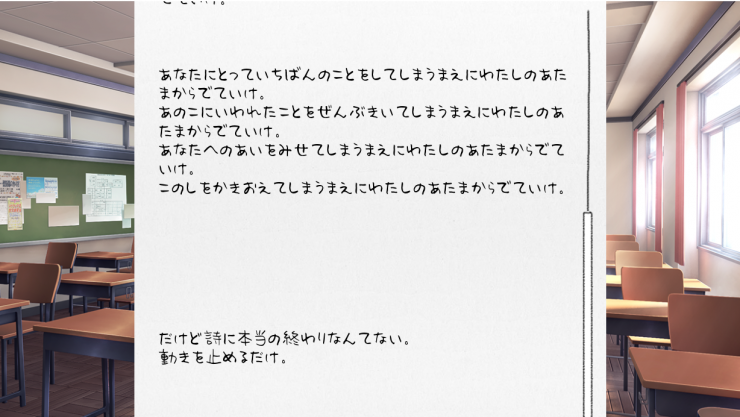 あなたにとっていちばんのことをしてしまうまえにわたしのあた
まからでていけ。
あのこにいわれたことをぜんぶきいてしまうまえにわたしのあ
たまからでていけ。
あなたへのあいをみせてしまうまえにわたしのあたまからでて
いけ。
このしをかきおえてしまうまえにわたしのあたまからでていけ。
だけど詩に本当の終わりなんてない。
動きを止めるだけ。